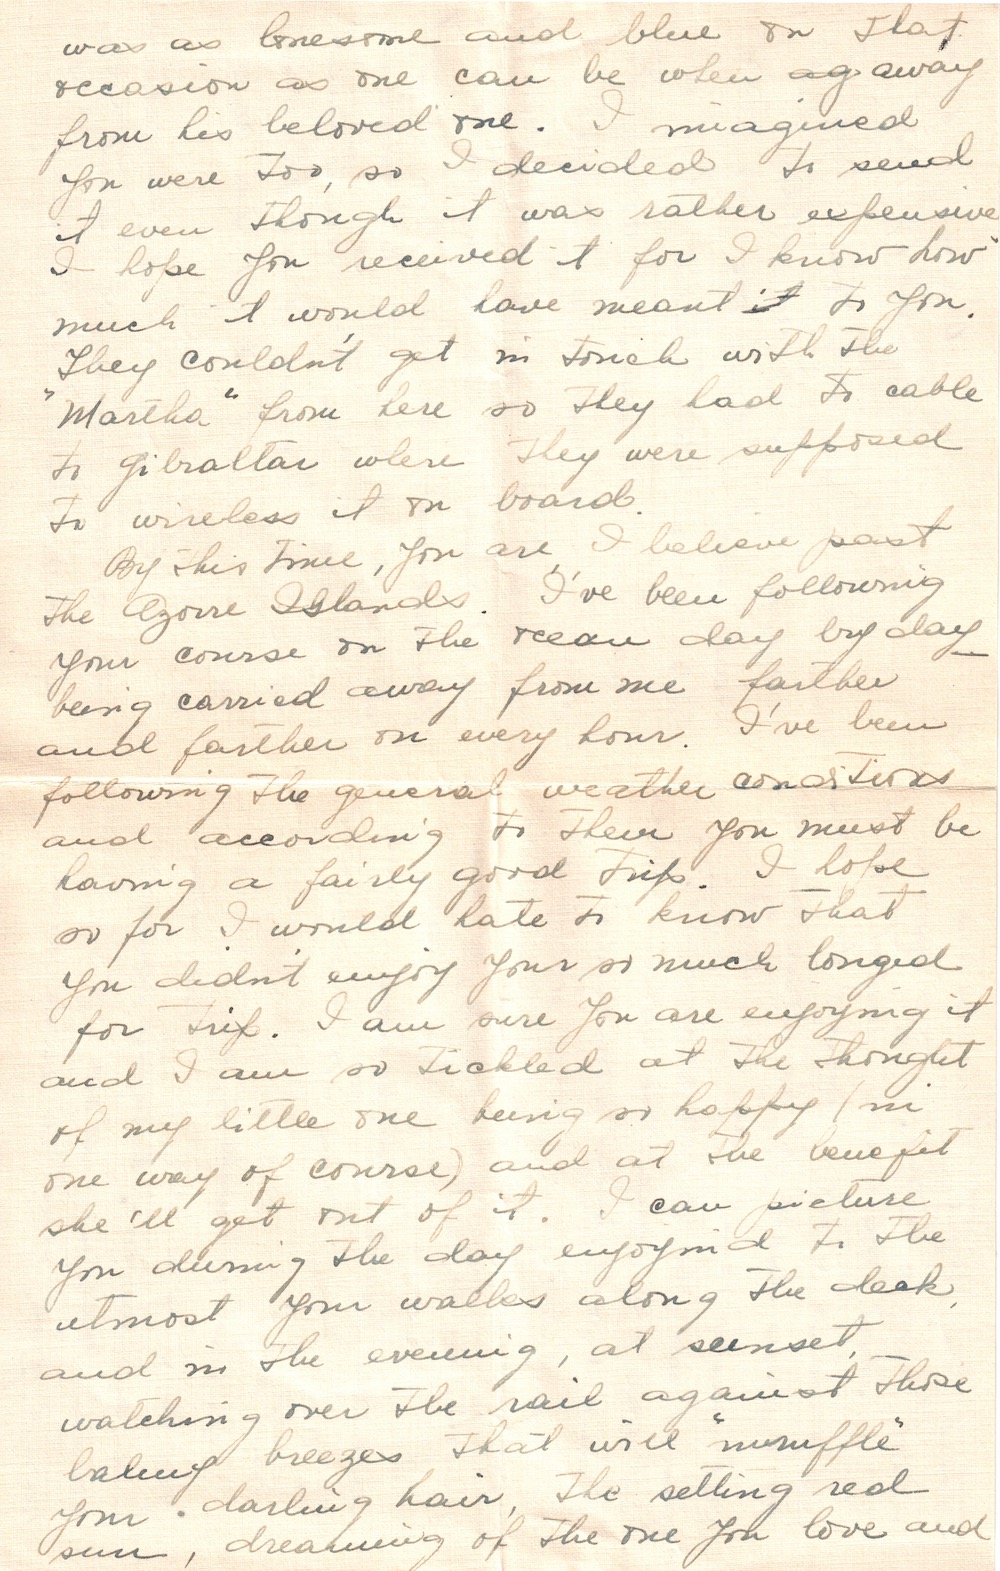 was as lonesome and blue on that
occasion as one can be when ag away
from his beloved one. I imagined
you were too, so I decided to send
it even though it was rather expensive
I hope you received it for I know how
much it would have meant it to you.
They couldn't get in touch with the
"Martha" from here so they had to cable
to Gibraltar where they were supposed
to wireless it on board.
By this time, you are, I believe past
the Azorre Islands. I've been following
your course on the ocean day by day_
being carried away from me farther
and farther on every hour. I've been
following the general weather conditions
and according to them you must be
having a fairly good trip. I hope
so for I would hate to know that
you didn't enjoy your so much longed
for trip. I am sure you are enjoying it
and I am so tickled at the thought
of my little one being so happy (in
one way of course) and at the benefit
she'll get out of it. I can picture
you during the day enjoyind to the
utmost your walks along the deck,
and in the evening, at sunset,
watching over the rail against those
balmy breezes that will "unruffle"
your darling hair, the setting red
sun, dreaming of the one you love and